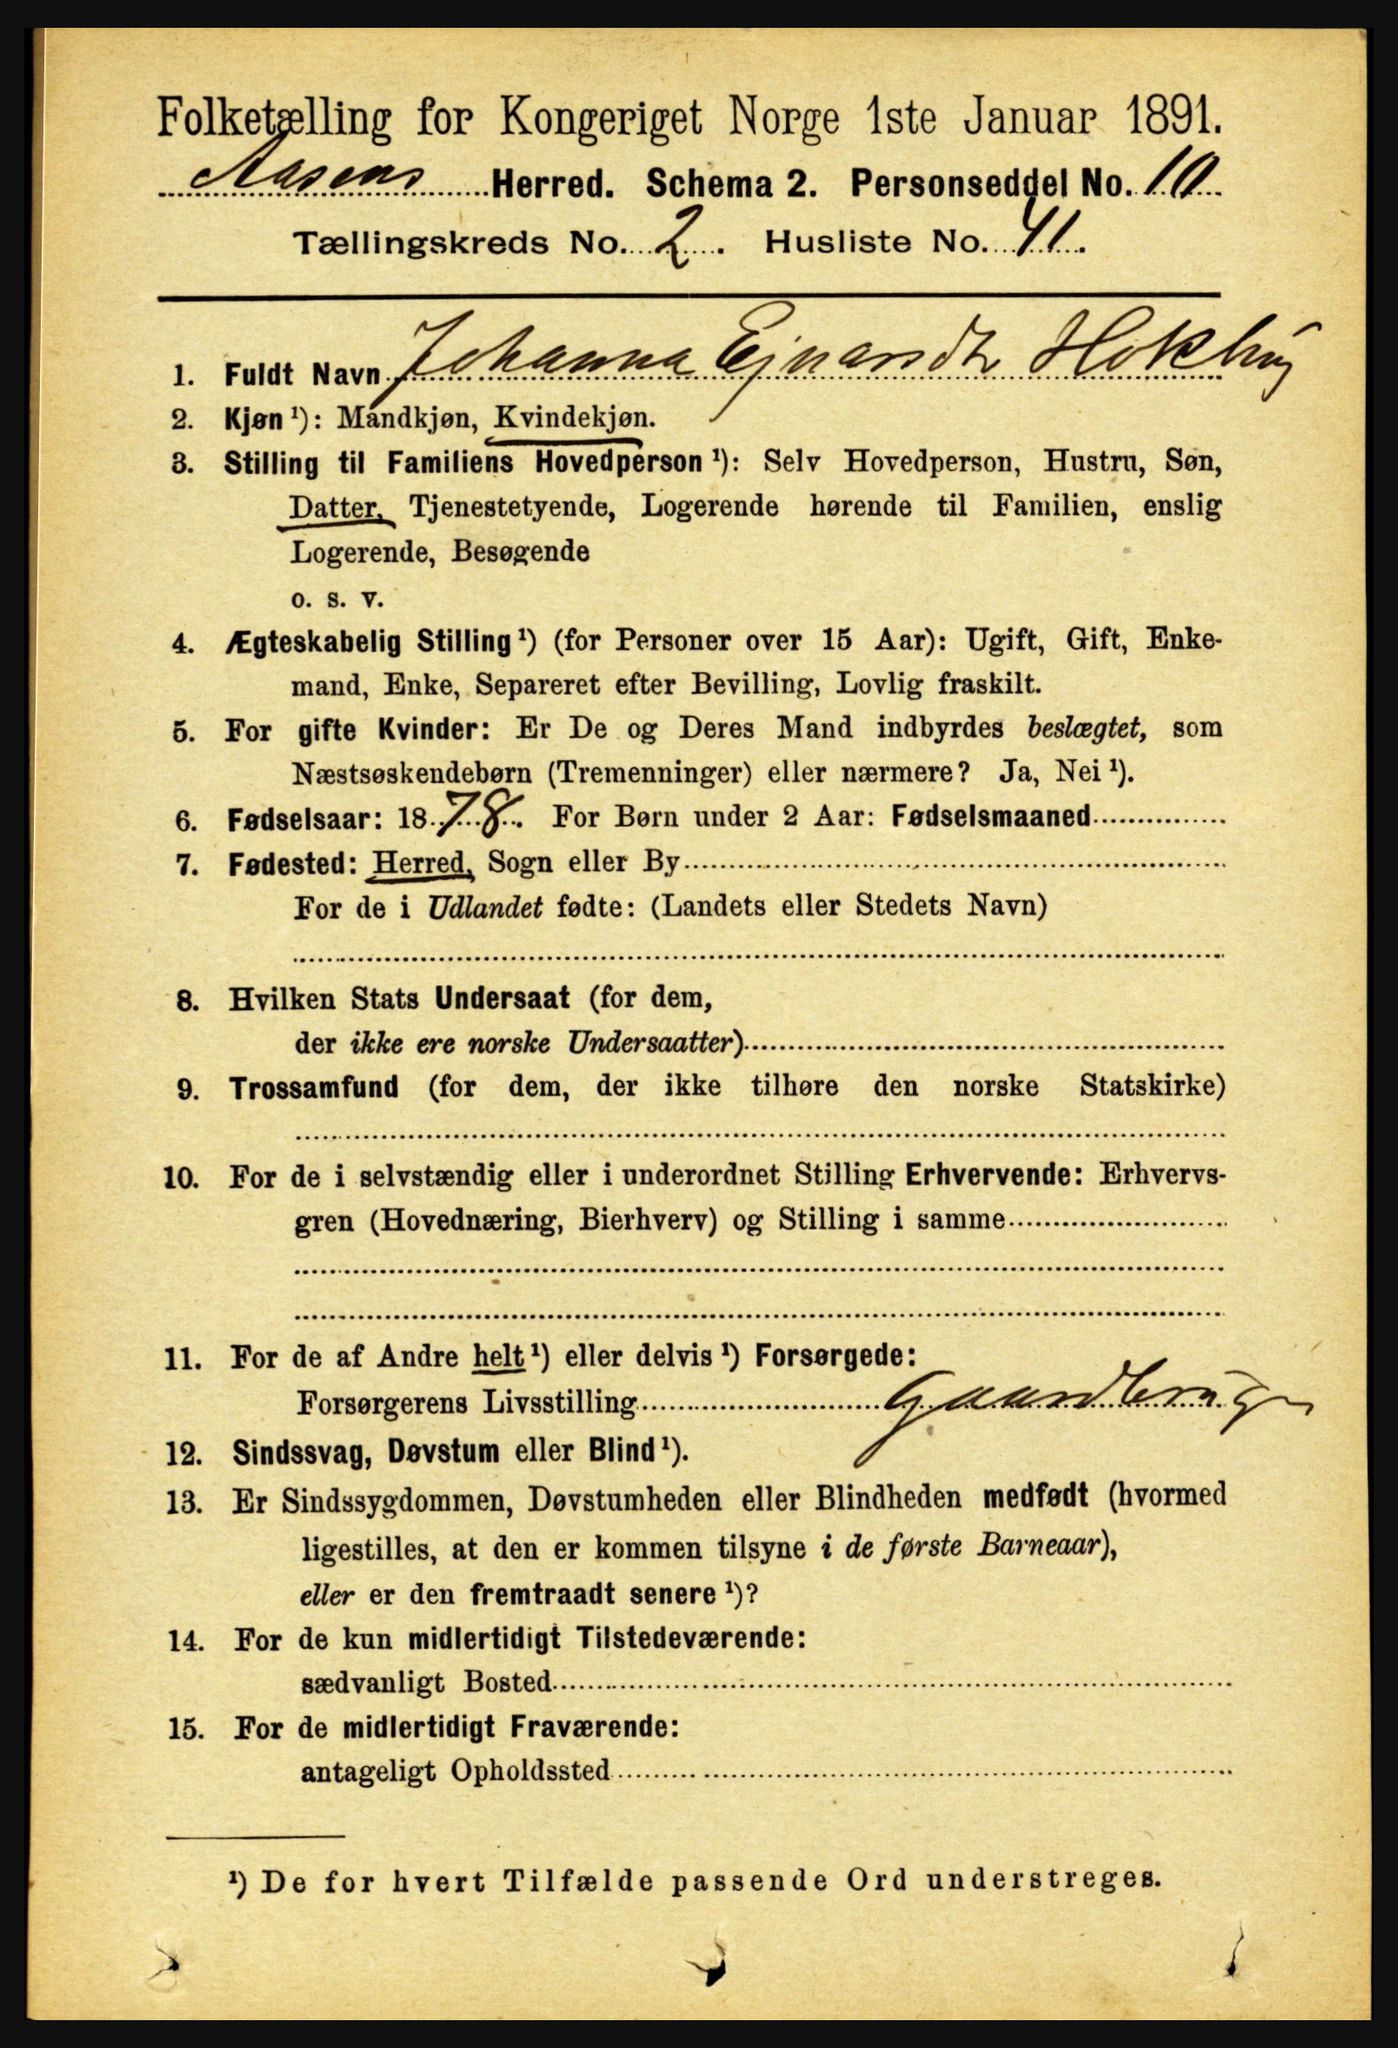 Folketælling for Kongeriget Norge 1ste Januar 1891.
Aasens Herred. Schema 2. Personseddel No. 10
Tællingskreds No. 2. Husliste No. 41.
1. Fuldt Navn Johanna Ejnarsdtr Hokbug
2. Kjøn ¹): Mandkjøn, Kvindekjøn.
3. Stilling til Familiens Hovedperson ¹): Selv Hovedperson, Hustru, Søn,
Datter, Tjenestetyende, Logerende hørende til Familien, enslig
Logerende, Besøgende
o. s. v.
4. Ægteskabelig Stilling ¹) (for Personer over 15 Aar): Ugift, Gift, Enke-
mand, Enke, Separeret efter Bevilling, Lovlig fraskilt.
5. For gifte Kvinder: Er De og Deres Mand indbyrdes beslægtet, som
Næstsøskendebørn (Tremenninger) eller nærmere? Ja, Nei ¹).
6. Fødselsaar: 1878. For Børn under 2 Aar: Fødselsmaaned
7. Fødested: Herred, Sogn eller By
For de i Udlandet fødte: (Landets eller Stedets Navn)
8. Hvilken Stats Undersaat (for dem,
der ikke ere norske Undersaatter)
9. Trossamfund (for dem, der ikke tilhøre den norske Statskirke)
10. For de i selvstændig eller i underordnet Stilling Erhvervende: Erhvervs-
gren (Hovednæring, Bierhverv) og Stilling i samme
11. For de af Andre helt ¹) eller delvis ¹) Forsørgede:
Forsørgerens Livsstilling Gaardbruger
12. Sindssvag, Døvstum eller Blind ¹).
13. Er Sindssygdommen, Døvstumheden eller Blindheden medfødt (hvormed
ligestilles, at den er kommen tilsyne i de første Barneaar),
eller er den fremtraadt senere ¹)?
14. For de kun midlertidigt Tilstedeværende:
sædvanligt Bosted
15. For de midlertidigt Fraværende:
antageligt Opholdssted
¹) De for hvert Tilfælde passende Ord understreges.